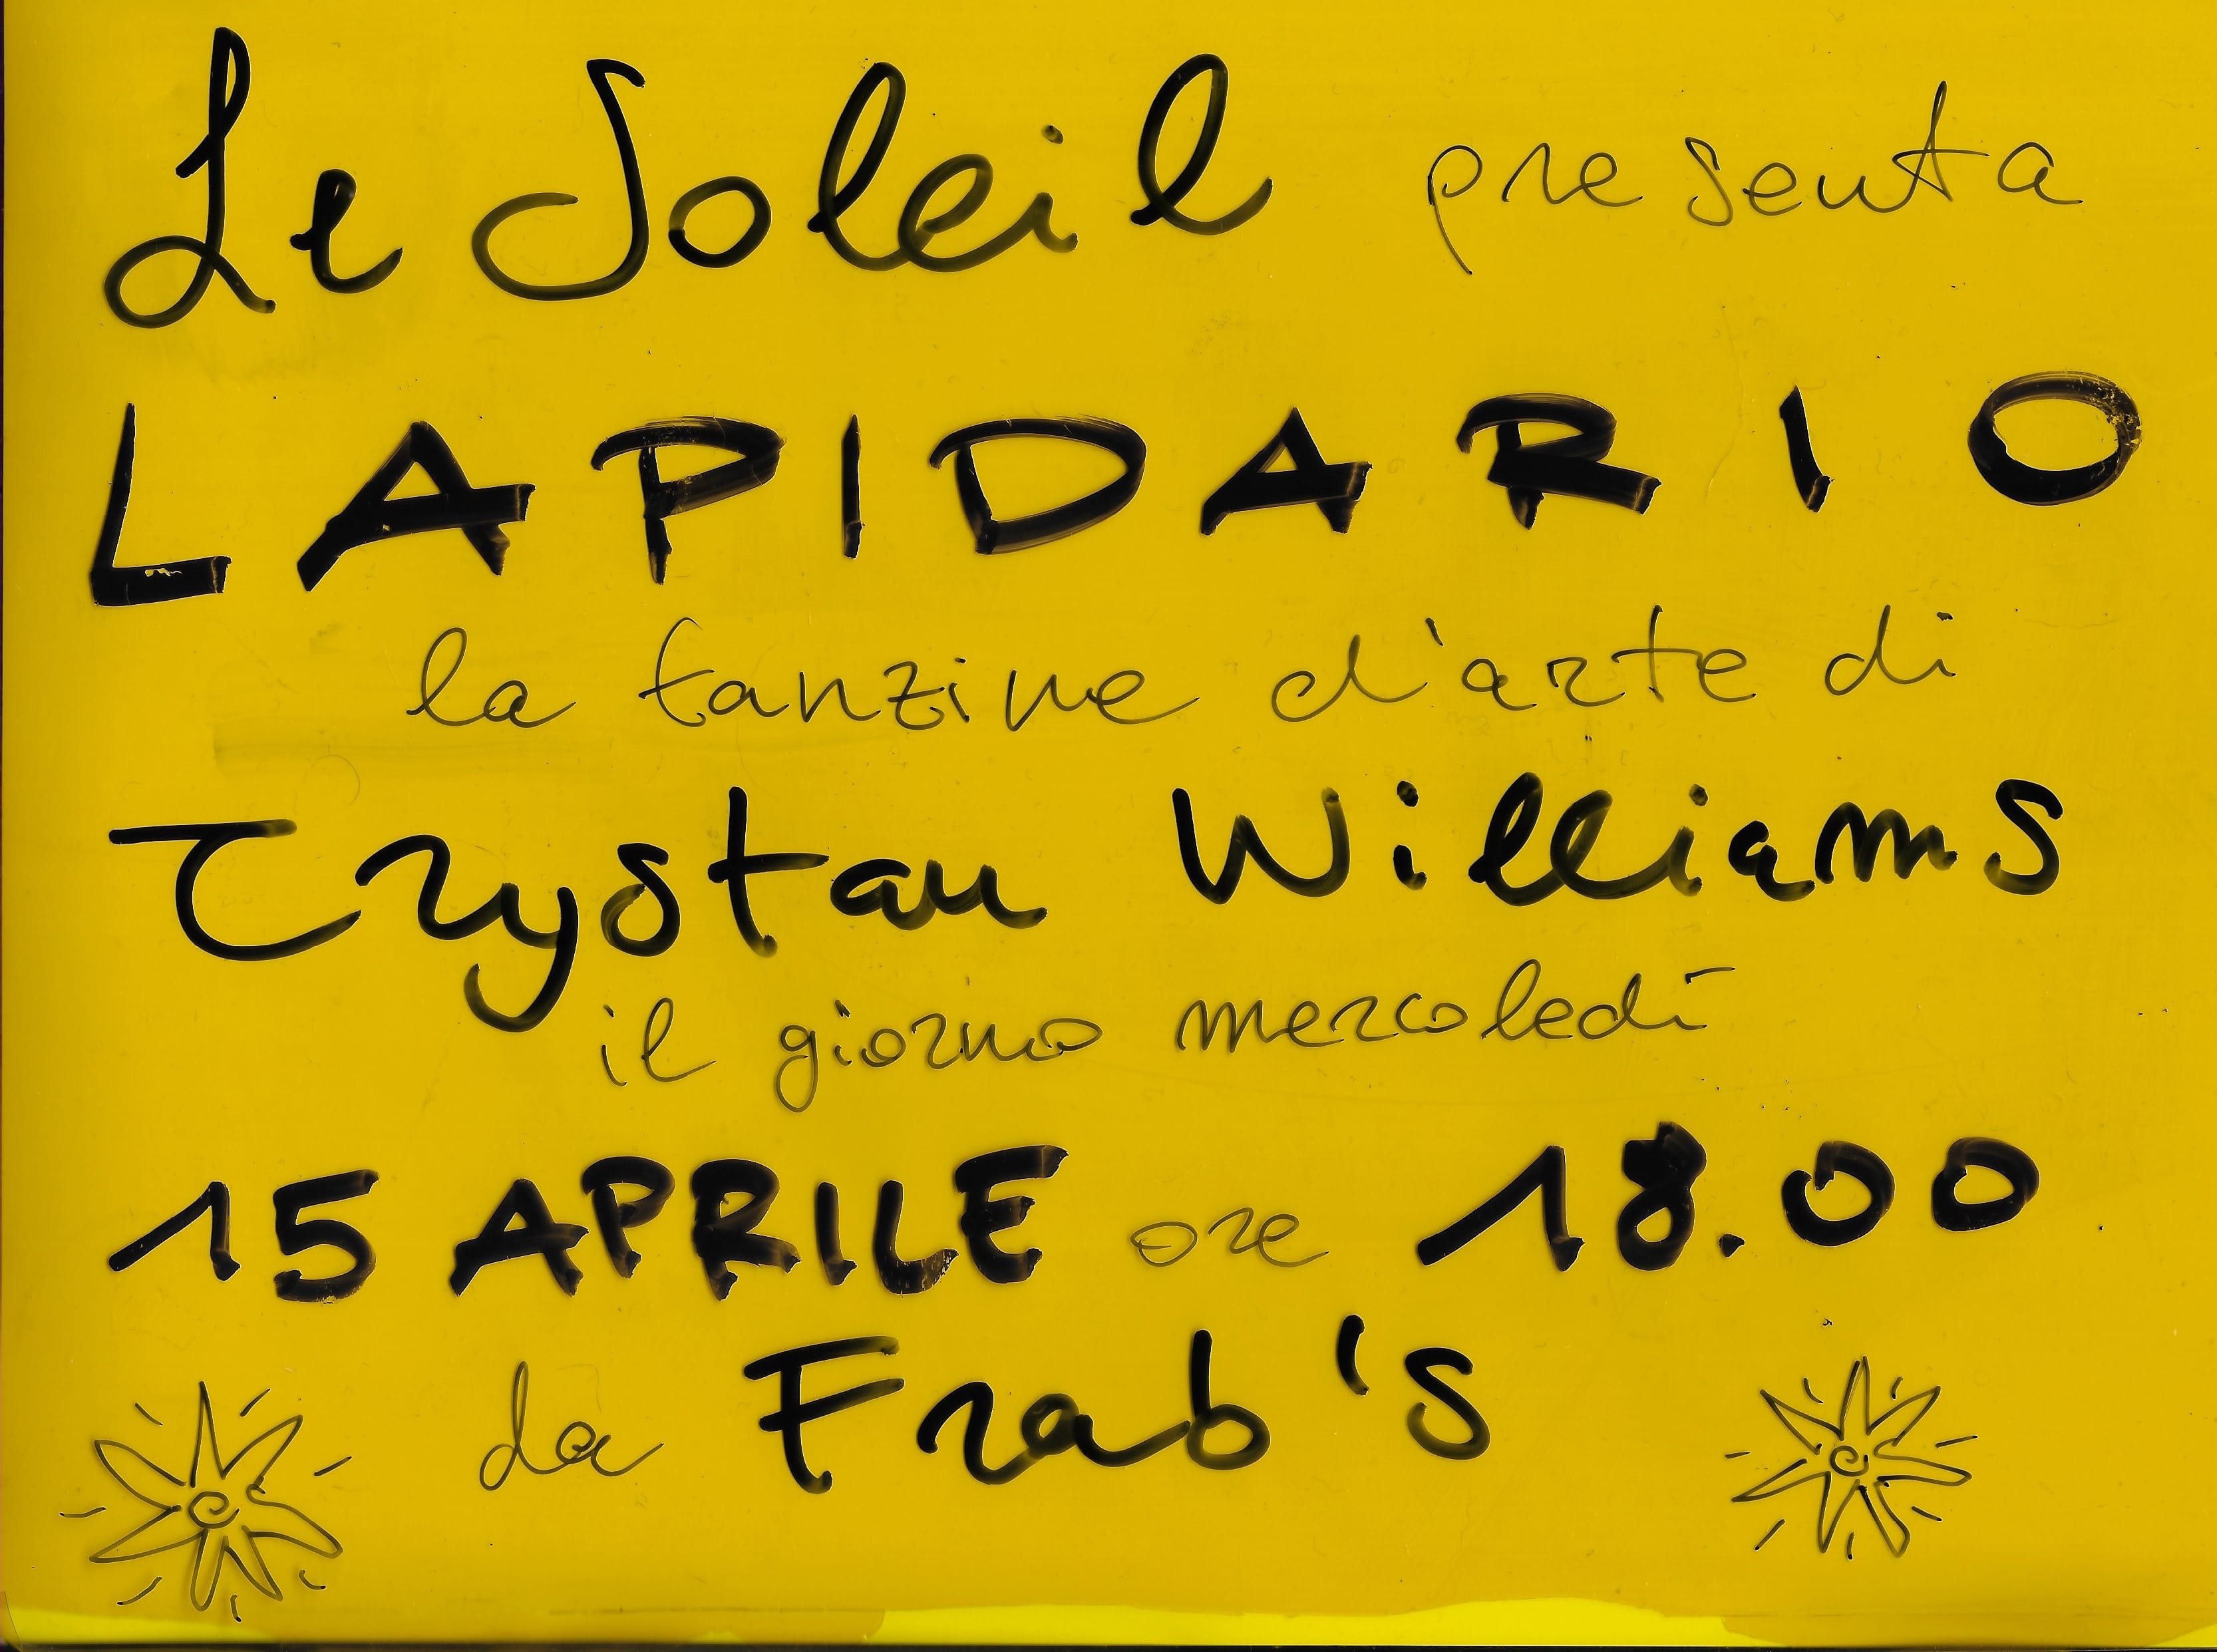 Le Soleil presenta
LAPIDARIO
la fanzine d'arte di
Trystan Williams
il giorno mercoledì
15 APRILE ore 18.00
da Frab's